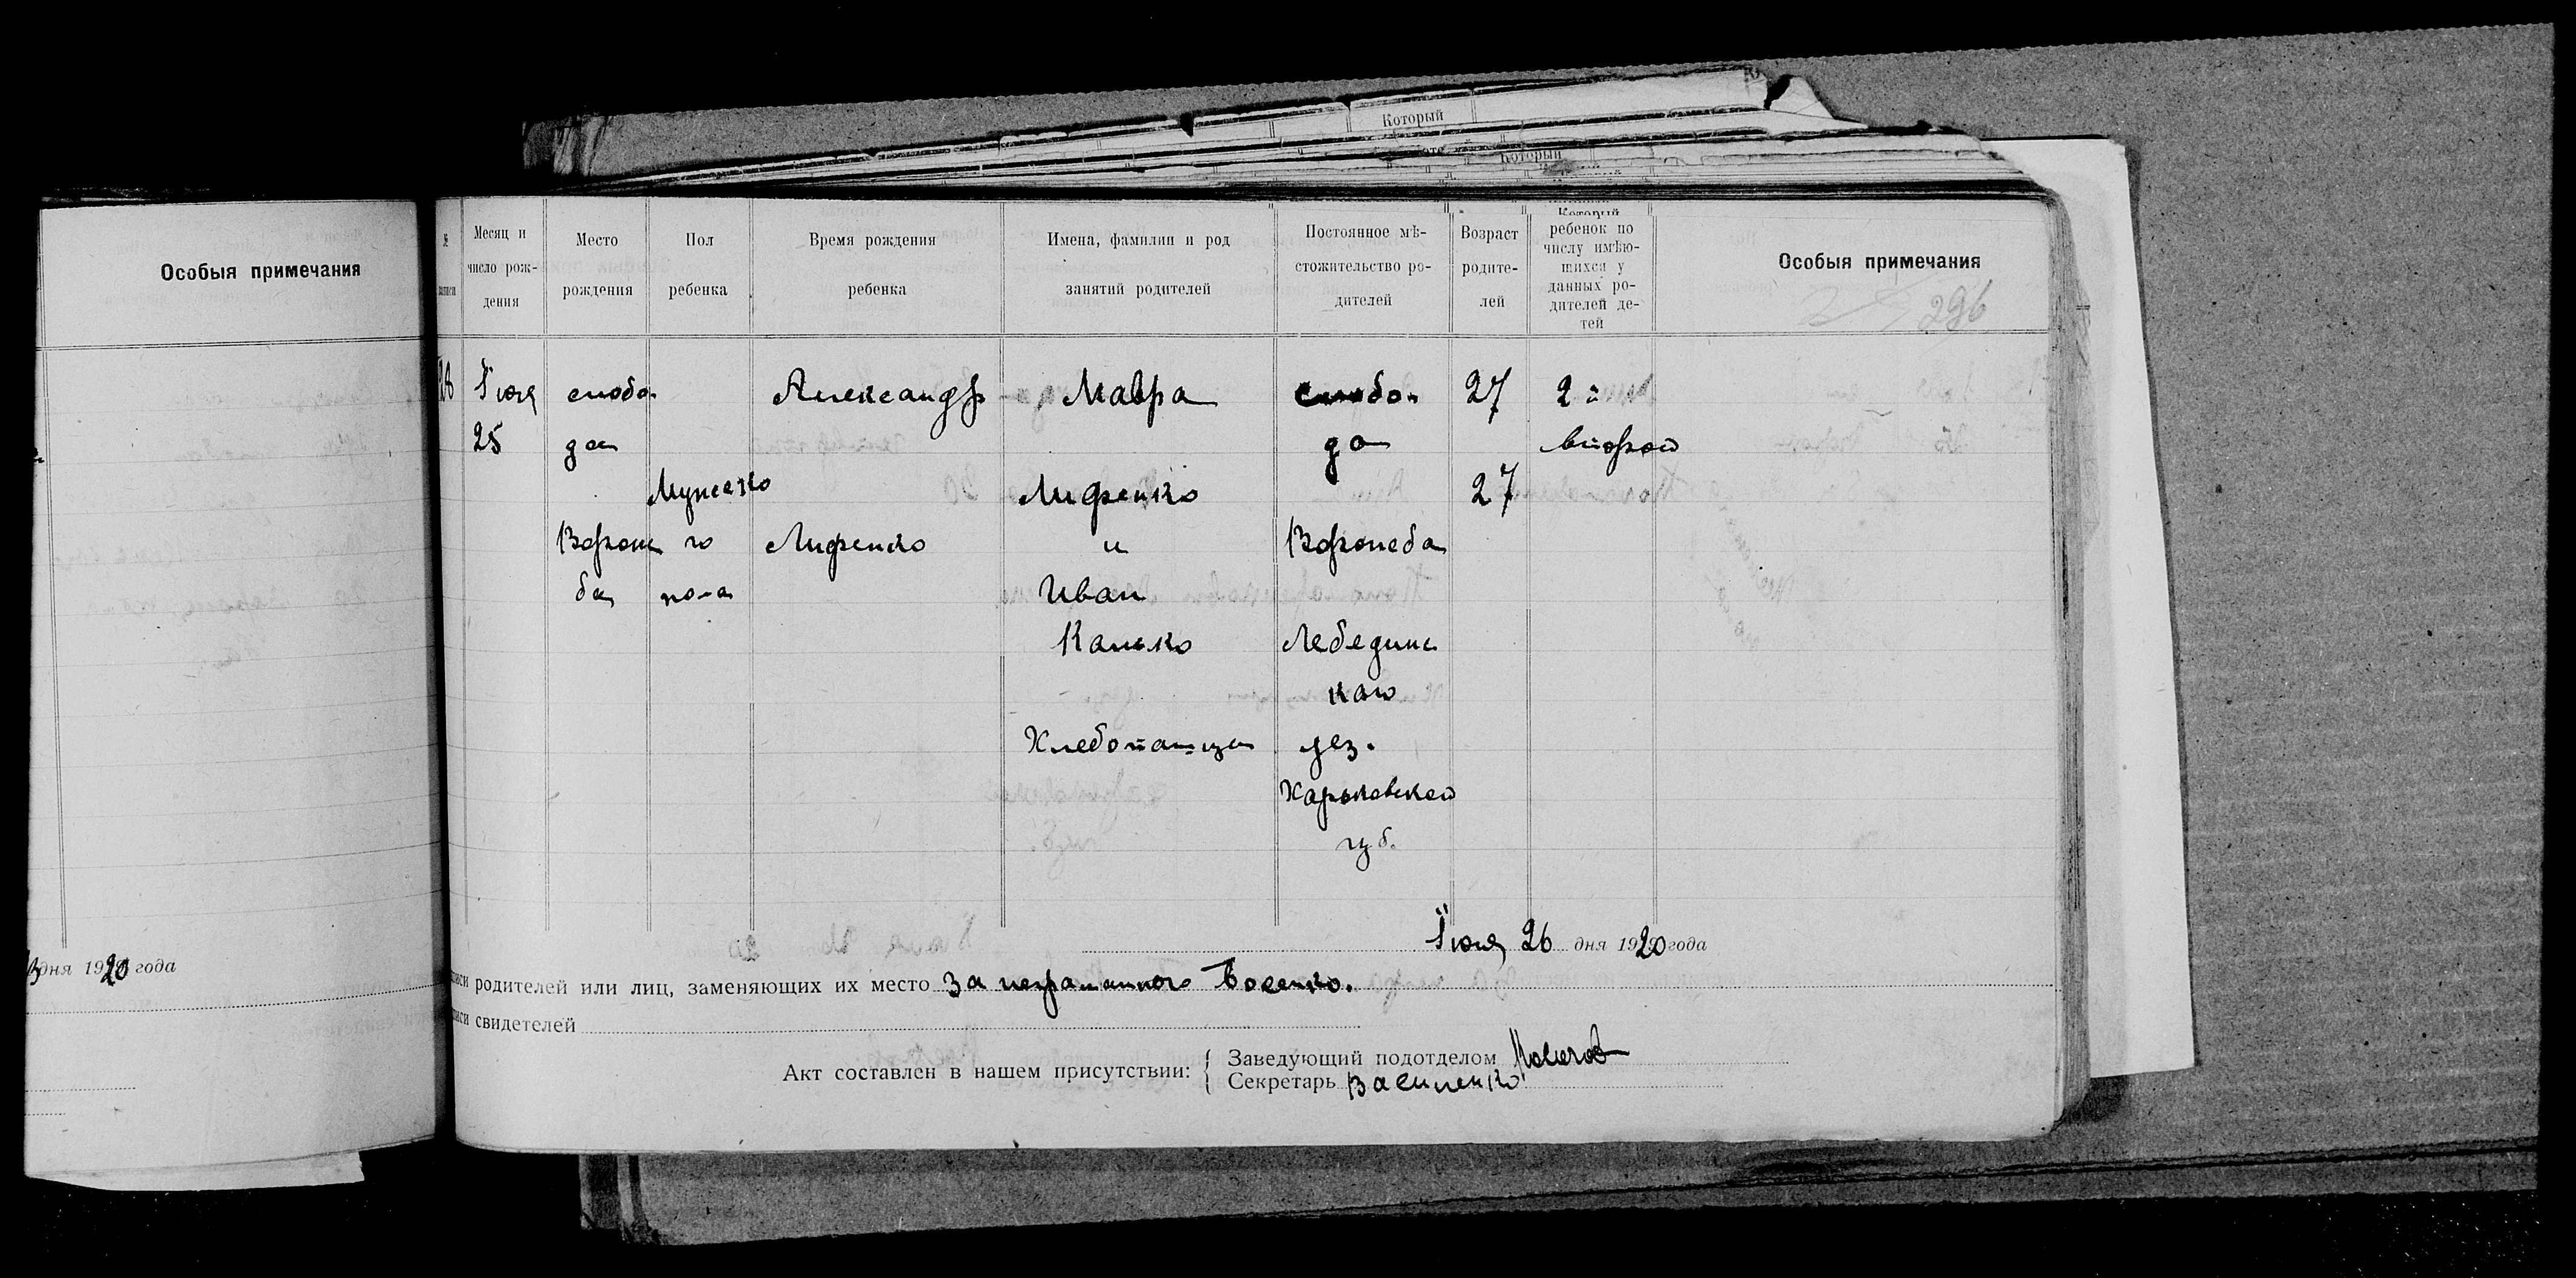 Который
Который
Особыя примечания
дня 1920 года
№ записи
Месяц и число рождения
Место рождения
Пол ребенка
Время рождения ребенка
Имена, фамилии и род занятий родителей
Постоянное мѣстожительство родителей
Возраст родителей
Который ребенок по числу имѣющихся у данных родителей детей
Особыя примечания
296
28
Іюля
25
слобо
да
Вороже
ба
Мужско
го
пола
Александр
Лифенко
Мавра
Лифенко
и
Иван
Канько
Хлебопашцы
слобо
да
Ворожеба
Лебединс
каго
уез.
Харьковской
губ.
27
27
2й
второй
Іюля 26 дня 1920 года
родителей или лиц, заменяющих их место За неграмотного
свидетелей
Акт составлен в нашем присутствии:
Заведующий подотделом
Секретарь Василенко